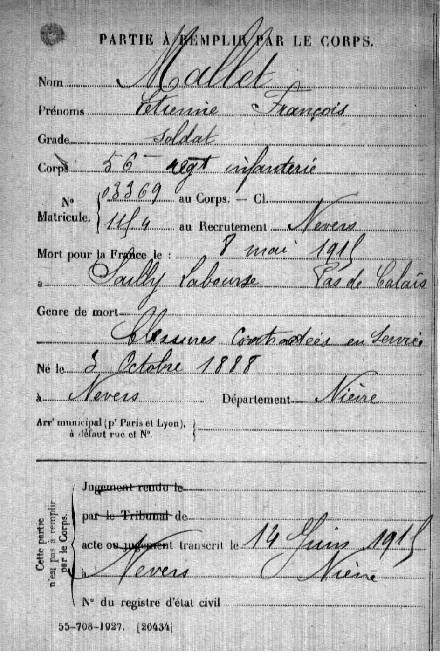 PARTIE À REMPLIR PAR LE CORPS.
Nom Mallet
Prénoms Etienne François
Grade soldat
Corps 56e regt infanterie
N° Matricule. 03369 au Corps. — Cl.
1154 au Recrutement Nevers
Mort pour la France le : 8 mai 1915
à Sailly Labourse Pas de Calais
Genre de mort
blessures contractées en service
Né le 3 Octobre 1888
à Nevers Département Nièvre
Arrt municipal (pr Paris et Lyon), à défaut rue et N°.
Cette partie n'est pas à remplir par le Corps.
Jugement rendu le
par le Tribunal de
acte ou jugement transcrit le 14 Juin 1915
à Nevers Nièvre
N° du registre d'état civil
55-708-1927. [26434]